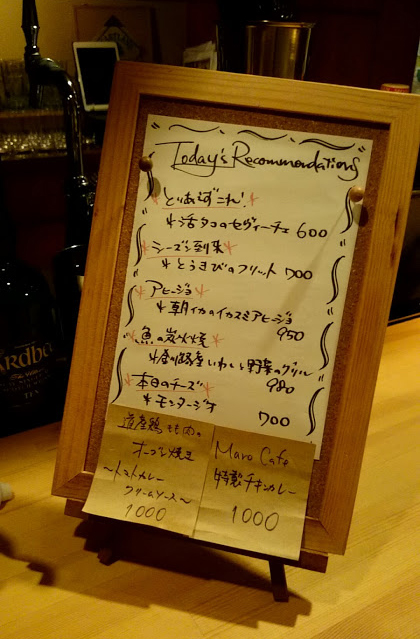 Today's Recommendations
とりあえずこれ!
活タコのセヴィーチェ 600
シーズン到来
とうきびのフリット 700
アヒージョ
朝イカのイカスミアヒージョ
950
魚の炭火焼
釧路産いわしと野菜のグリル
980
本日のチーズ
モンタージオ
700
道産鶏もも肉の
オーブン焼き
〜トマトカレー
クリームソース〜
1000
Maro Cafe
特製チキンカレー
1000
ARDBEG